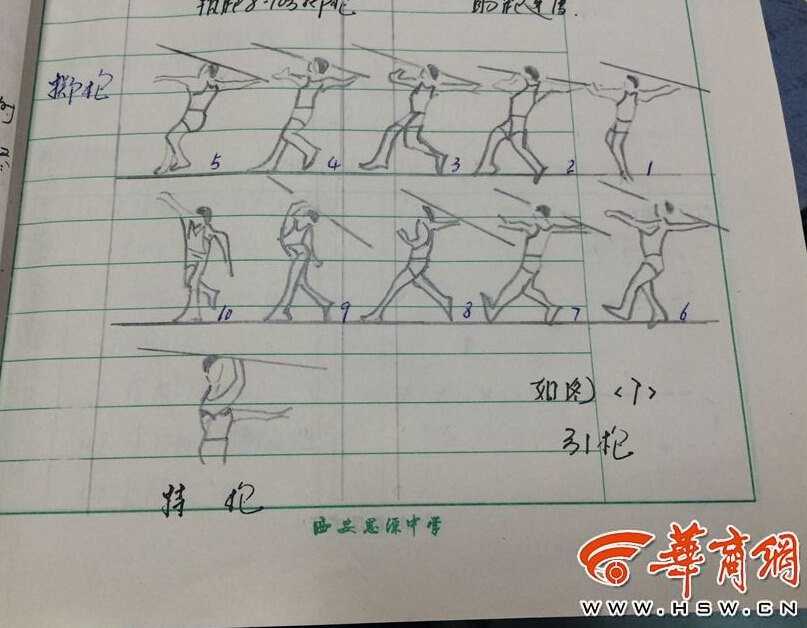 助跑速度.
掷枪
5 4 3 2 1
10 9 8 7 6
如图〈7〉
引枪
持 枪
西安思源中学
華商網
WWW.HSW.CN